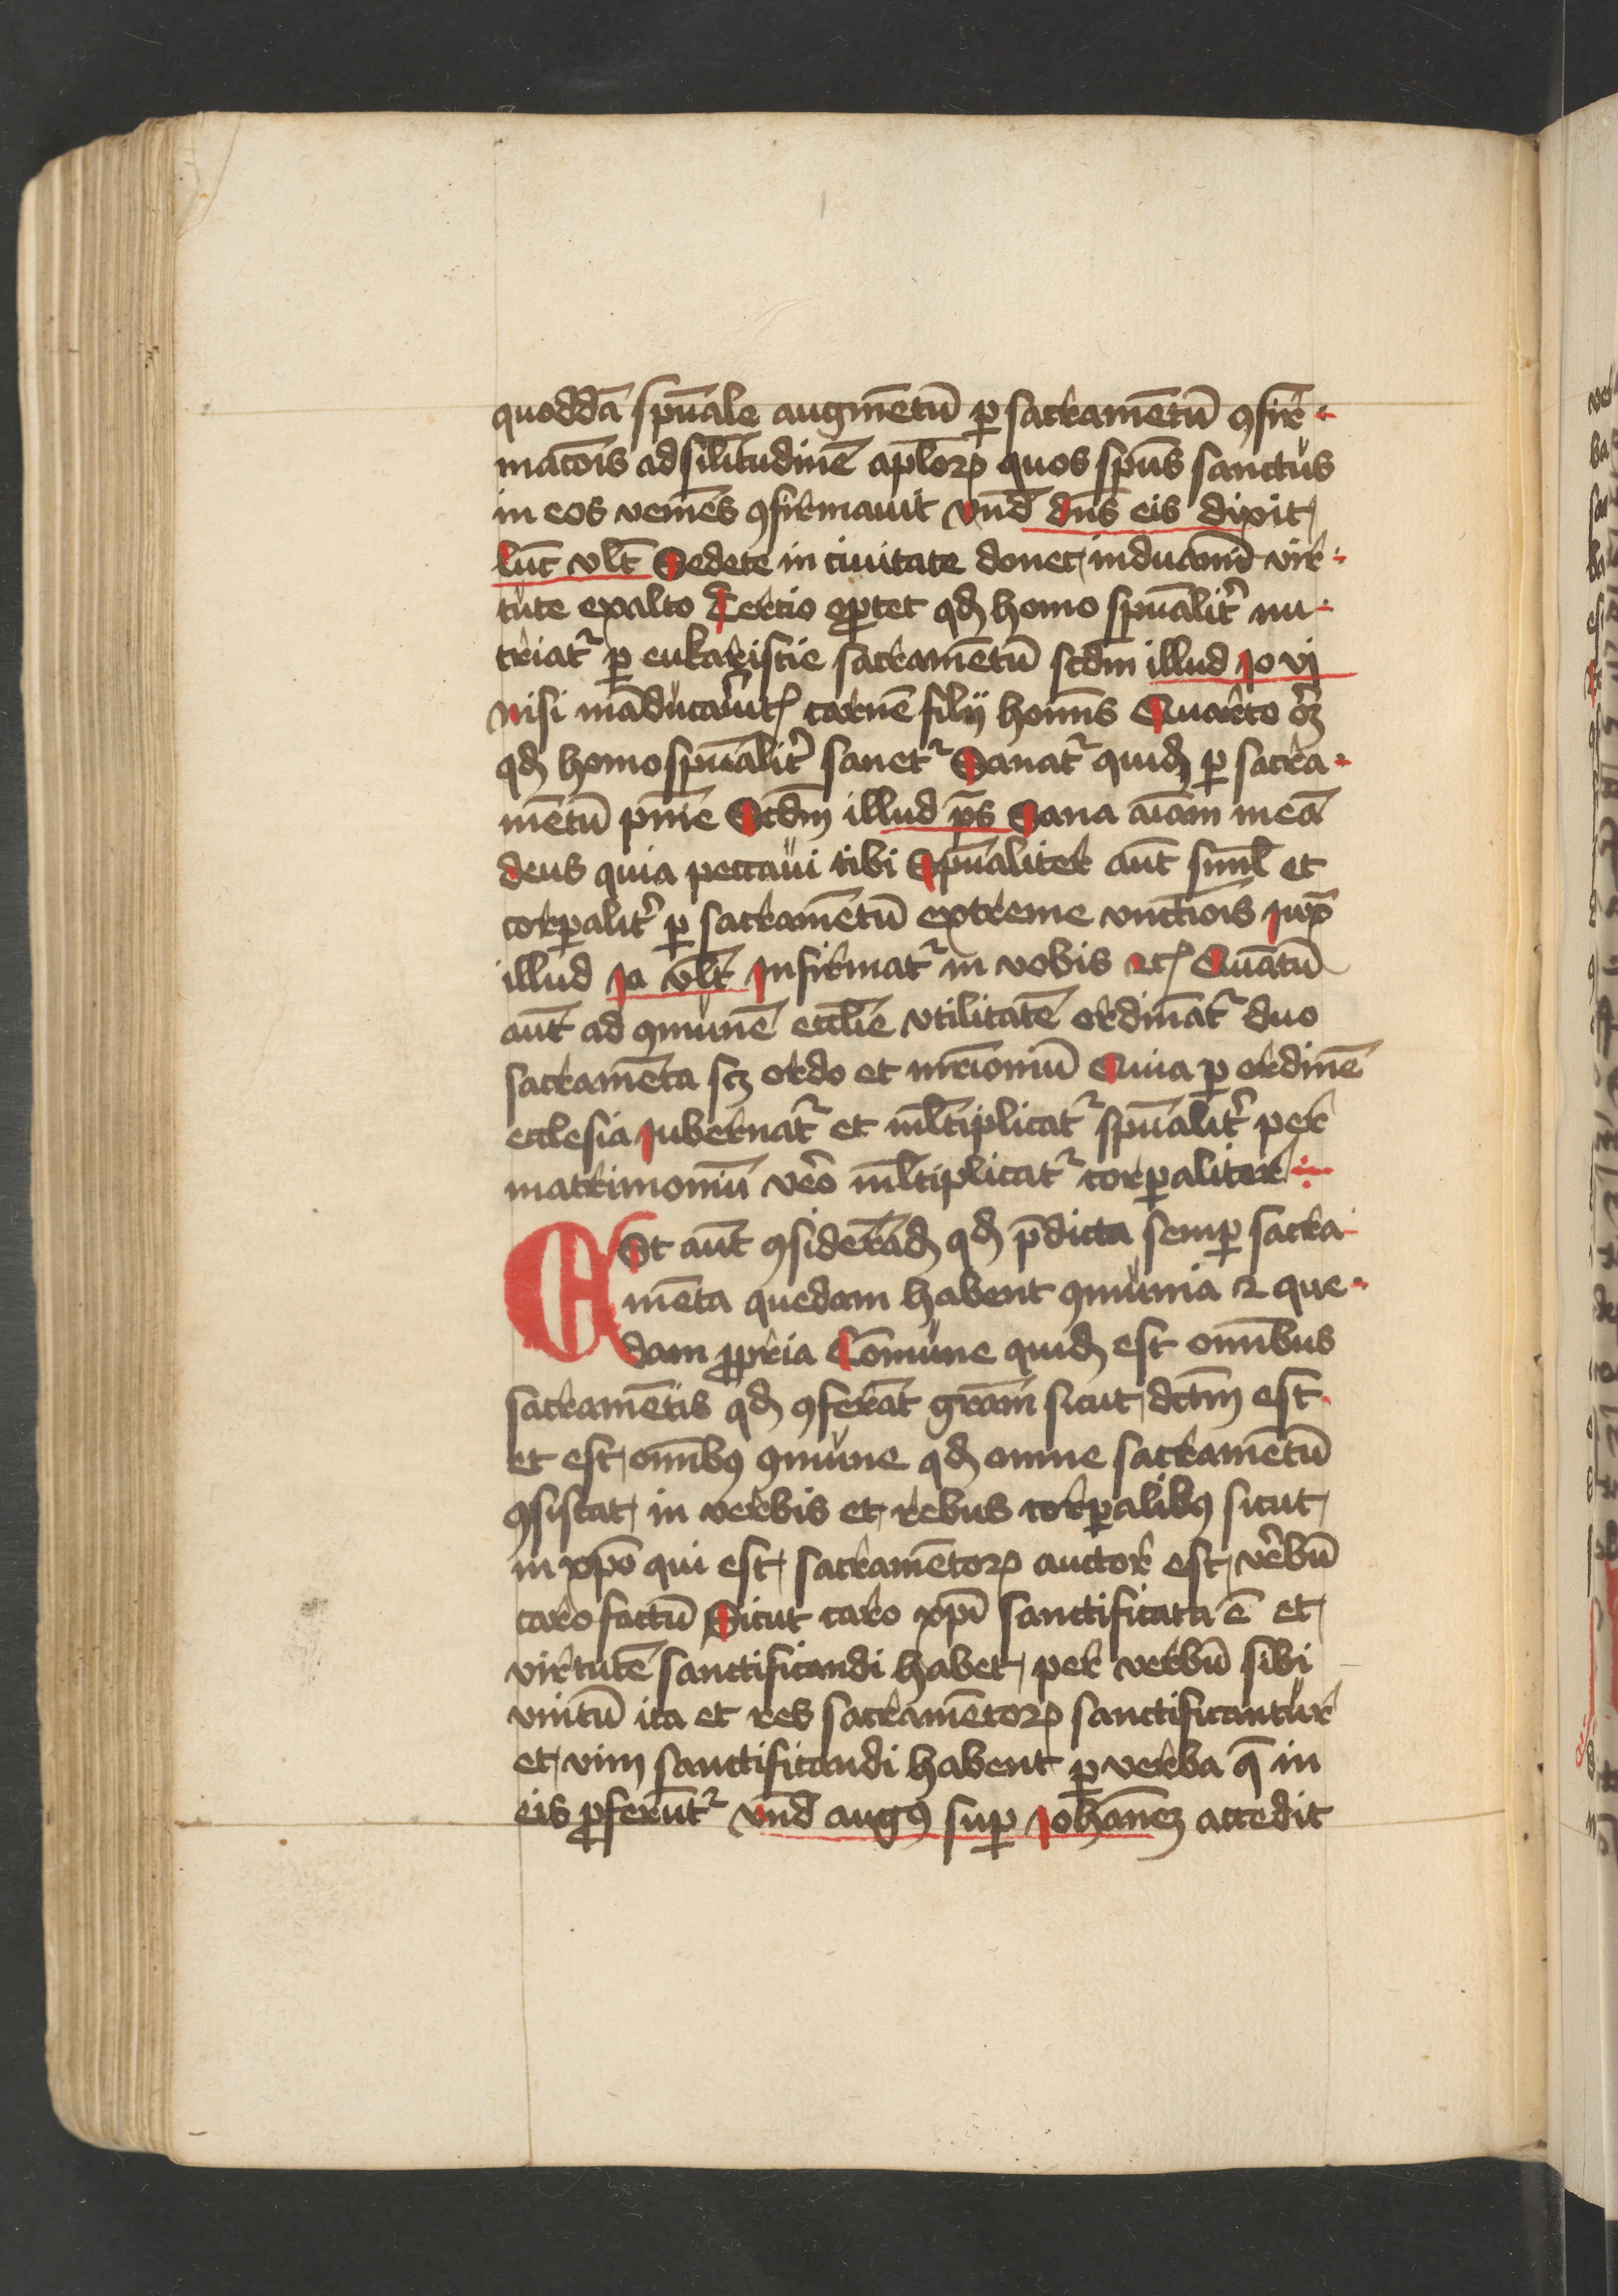 quoddā spūale augmētū ꝑ sacramētū ꝯfir-
matōis ad silitudinē aplōꝝ quos spūs sanctus
in eos veniēs ꝯfirmauit vn̄d dn̄s eis dixit
luc̄ vlt̄ Sedete in ciuitate donec induamī vir-
tute exalto Tercio oꝑtet qd homo spūalit̉ nu-
triatᷣ ꝑ eukaristie sacramētū scdm illud Jo vj
nisi māducaủitꝭ carnē filij homīs Quarto oꝫ
qd homo spūalit̉ sanetᷣ Sanatᷣ quidꝫ ꝑ sacra-
mētū pn̄ie Scdm illud ps̄ Sana aīam meā
deus quia peccaui tibi Spūaliter aūt siml̄ et
corꝑalit̉ ꝑ sacramētū extreme vnctiōis Juxᷓ
illud Ja vlt̄ Infirmatᷣ in vobis ⁊cꝭ Quātū
aūt ad ꝯmunē ecclīe vtilitatē ordinātᷣ duo
sacramēta scꝫ ordo et mr̄ioniū Quia ꝑ ordinē
ecclesia Jubernatᷣ et ml̄tiplicatᷣ spūalit̉ per
matrimoniū vero ml̄tiplicatᷣ corꝑaliter
ESt aūt ꝯsiderādꝫ qd p̄dicta semꝑ sacra-
mēta quedam habent ꝯmunia ⁊ que-
dam ꝓpria Comune quidꝫ est omībus
sacramētis qd ꝯferāt grām sicut dctm est
et est omībꝰ ꝯmune qd omne sacramētū
ꝯsistat in verbis et rebus corꝑalibꝰ sicut
in xp̄o qui est sacramētoꝝ auctor est v̉bū
caro factū Sicut caro xp̄i sanctificata ē et
virtutē sanctificandi habet per verbū sibi
vnitū ita et res sacramētoꝝ sanctificantur
et vim sanctificandi habent ꝑ verba q̄ in
eis ꝓferūtᷣ vn̄d augꝰ suꝑ Johānēꝫ accedit